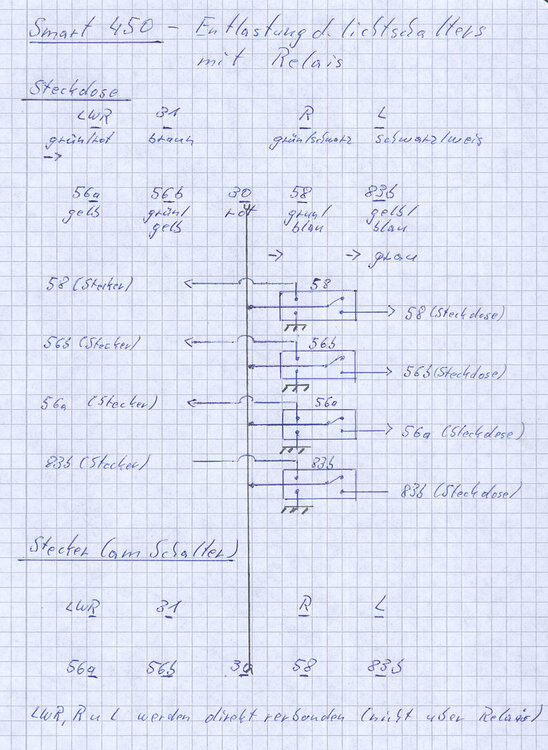 Smart 450 – Entlastung d. Lichtschalters
mit Relais
Steckdose
LWR 31 R L
grün/rot braun grün/schwarz schwarz/weiß
->
56a 56b 30 58 83b
gelb grün/gelb rot grün/blau gelb/blau
-> -> grau
58 (Stecker) 58
58 (Steckdose)
56b (Stecker) 56b
56b (Steckdose)
56a (Stecker) 56a
56a (Steckdose)
83b (Stecker) 83b
83b (Steckdose)
Stecker (am Schalter)
LWR 31 R L
56a 56b 30 58 83b
LWR, R u L werden direkt verbunden (nicht über Relais)